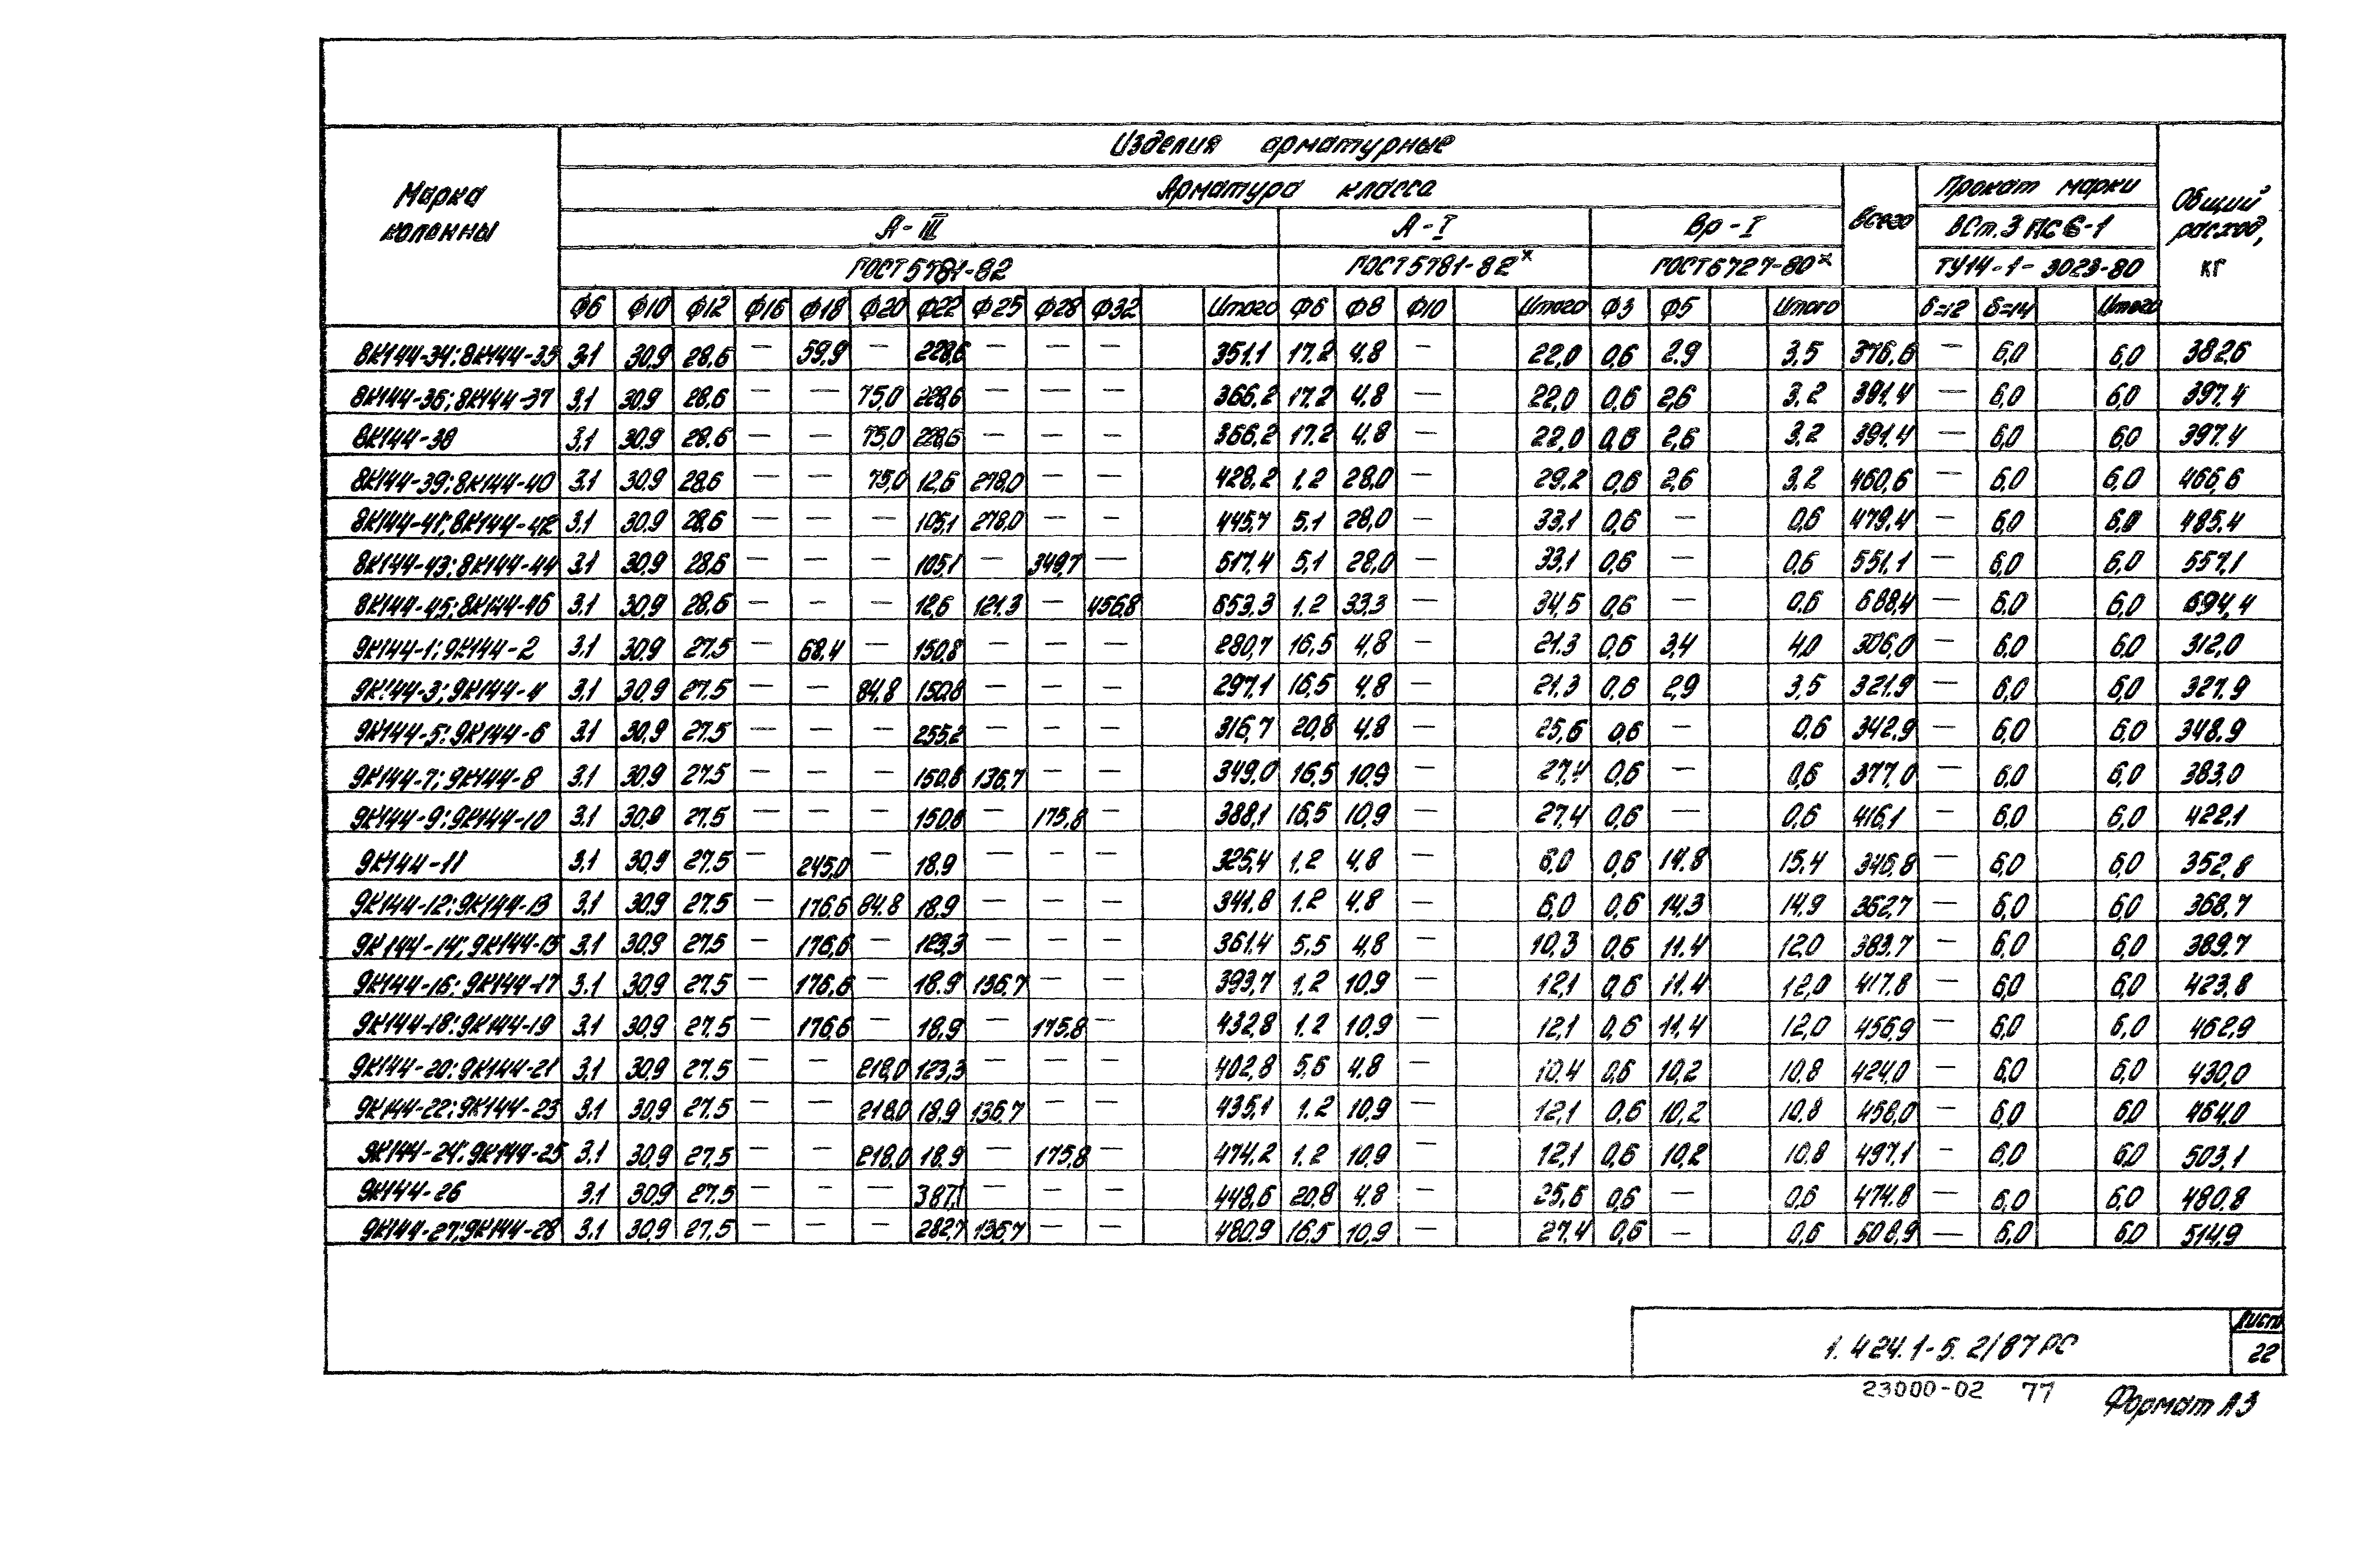 Изделия арматурные
Марка колонны
Арматура класса
Всего
Прокат марки
Общий расход, кг
А-III
А-I
Вр-I
ВСт.3 ПС 6-1
ГОСТ 5781-82
ГОСТ 5781-82*
ГОСТ 6727-80*
ТУ14-1-3023-80
Ф6 Ф10 Ф12 Ф16 Ф18 Ф20 Ф22 Ф25 Ф28 Ф32 Итого Ф6 Ф8 Ф10 Итого Ф3 Ф5 Итого δ=12 δ=14 Итого
8К144-34; 8К144-35 3,1 30,9 28,6 — 59,9 228,6 — — — 351,1 17,2 4,8 — 22,0 0,6 2,9 3,5 376,6 — 6,0 6,0 382,6
8К144-36; 8К144-37 3,1 30,9 28,6 — — 75,0 228,6 — — — 366,2 17,2 4,8 — 22,0 0,6 2,6 3,2 391,4 — 6,0 6,0 397,4
8К144-38 3,1 30,9 28,6 — — 75,0 228,6 — — — 366,2 17,2 4,8 — 22,0 0,6 2,6 3,2 391,4 — 6,0 6,0 397,4
8К144-39; 8К144-40 3,1 30,9 28,6 — — 75,0 12,6 278,0 — — 428,2 1,2 28,0 — 29,2 0,6 2,6 3,2 460,6 — 6,0 6,0 466,6
8К144-41; 8К144-42 3,1 30,9 28,6 — — — 105,1 278,0 — — 445,7 5,1 28,0 — 33,1 0,6 — 0,6 479,4 — 6,0 6,0 485,4
8К144-43; 8К144-44 3,1 30,9 28,6 — — — 105,1 — 349,7 — 517,4 5,1 28,0 — 33,1 0,6 — 0,6 551,1 — 6,0 6,0 557,1
8К144-45; 8К144-46 3,1 30,9 28,6 — — — 12,6 121,3 — 456,8 653,3 1,2 33,3 — 34,5 0,6 — 0,6 688,4 — 6,0 6,0 694,4
9К144-1; 9К144-2 3,1 30,9 27,5 — 68,4 — 150,8 — — — 280,7 16,5 4,8 — 21,3 0,6 3,4 4,0 306,0 — 6,0 6,0 312,0
9К144-3; 9К144-4 3,1 30,9 27,5 — — 84,8 150,8 — — — 297,1 16,5 4,8 — 21,3 0,6 2,9 3,5 321,9 — 6,0 6,0 327,9
9К144-5; 9К144-6 3,1 30,9 27,5 — — — 255,2 — — — 316,7 20,8 4,8 — 25,6 0,6 — 0,6 342,9 — 6,0 6,0 348,9
9К144-7; 9К144-8 3,1 30,9 27,5 — — — 150,8 136,7 — — 349,0 16,5 10,9 — 27,4 0,6 — 0,6 377,0 — 6,0 6,0 383,0
9К144-9; 9К144-10 3,1 30,9 27,5 — — — 150,8 — 175,8 — 388,1 16,5 10,9 — 27,4 0,6 — 0,6 416,1 — 6,0 6,0 422,1
9К144-11 3,1 30,9 27,5 — 245,0 — 18,9 — — — 325,4 1,2 4,8 — 6,0 0,6 14,8 15,4 346,8 — 6,0 6,0 352,8
9К144-12; 9К144-13 3,1 30,9 27,5 — 176,6 84,8 18,9 — — — 341,8 1,2 4,8 — 6,0 0,6 14,3 14,9 362,7 — 6,0 6,0 368,7
9К144-14; 9К144-15 3,1 30,9 27,5 — 176,6 — 123,3 — — — 361,4 5,5 4,8 — 10,3 0,6 11,4 12,0 383,7 — 6,0 6,0 389,7
9К144-16; 9К144-17 3,1 30,9 27,5 — 176,6 — 18,9 136,7 — — 393,7 1,2 10,9 — 12,1 0,6 11,4 12,0 417,8 — 6,0 6,0 423,8
9К144-18; 9К144-19 3,1 30,9 27,5 — 176,6 — 18,9 — 175,8 — 432,8 1,2 10,9 — 12,1 0,6 11,4 12,0 456,9 — 6,0 6,0 462,9
9К144-20; 9К144-21 3,1 30,9 27,5 — — 218,0 123,3 — — — 402,8 5,6 4,8 — 10,4 0,6 10,2 10,8 424,0 — 6,0 6,0 430,0
9К144-22; 9К144-23 3,1 30,9 27,5 — — 218,0 18,9 136,7 — — 435,1 1,2 10,9 — 12,1 0,6 10,2 10,8 458,0 — 6,0 6,0 464,0
9К144-24; 9К144-25 3,1 30,9 27,5 — — 218,0 18,9 — 175,8 — 474,2 1,2 10,9 — 12,1 0,6 10,2 10,8 497,1 — 6,0 6,0 503,1
9К144-26 3,1 30,9 27,5 — — — 387,1 — — — 448,6 20,8 4,8 — 25,6 0,6 — 0,6 474,8 — 6,0 6,0 480,8
9К144-27; 9К144-28 3,1 30,9 27,5 — — — 282,7 136,7 — — 480,9 16,5 10,9 — 27,4 0,6 — 0,6 508,9 — 6,0 6,0 514,9
1.424.1-5.2/87 РС
Лист
22
23000-02 77
Формат А3